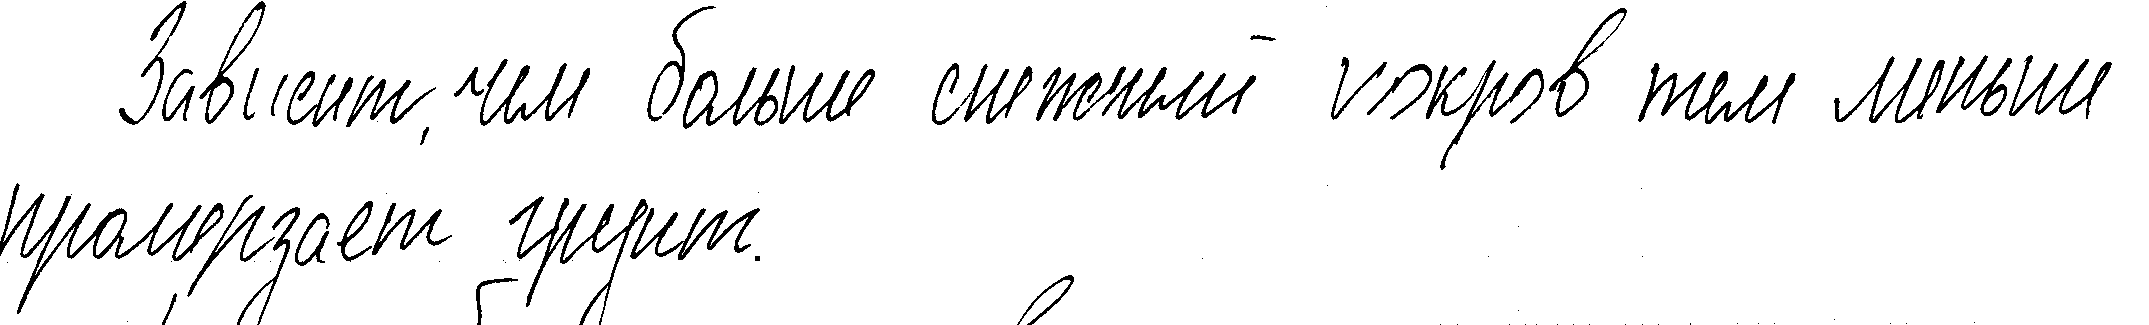 Зависит, чем больше снежный покров тем меньше
промерзает грунт.